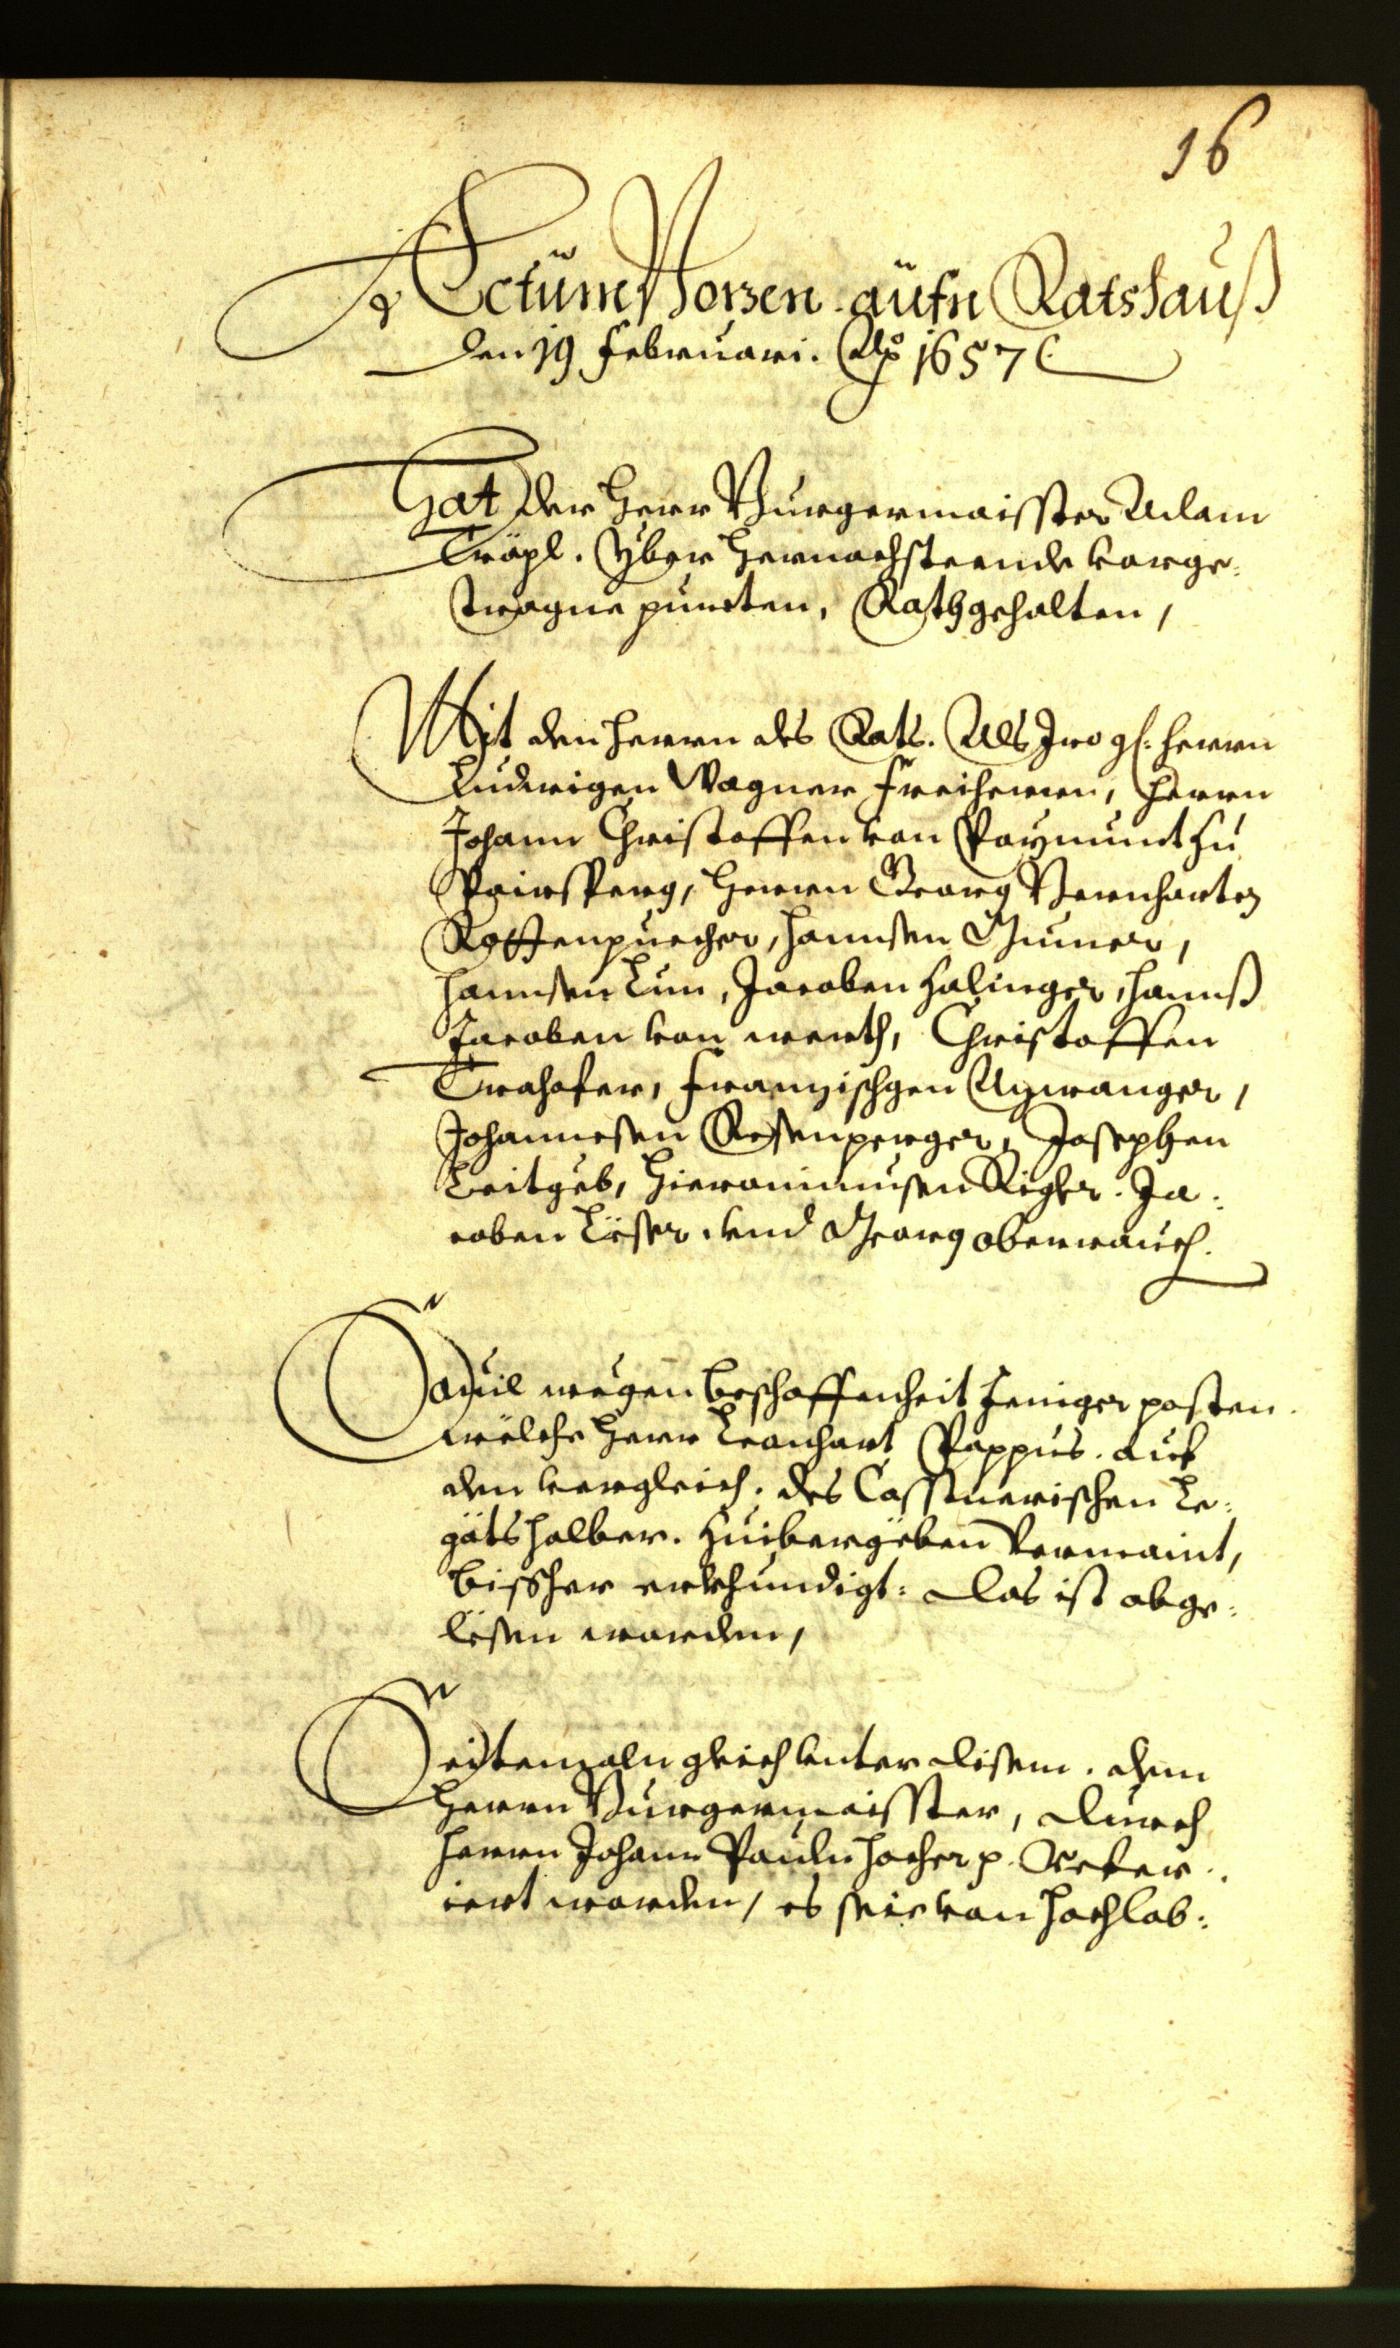 16
Actum Pozen aufn Ratshauß
den 19 Februari. Ao 1657
Hat der Herr Burgermaisster Adam
Träpl. Yber hernachsteende vorge:
tragne puncten, Rath gehalten,
Mit den Herrn des Rats. Als Iro gl: Herrn
Ludwigen Wagner Freiherrn, Herrn
Johann Christoffen von Paymunt zu
Pairsperg, Herrn Georg Bernharten
Rottenpuecher, Hannsen Gumer,
Hannsen Lun, Jacoben Halinger, Hannß
Jacoben von werth, Christoffen
Trahofer, Frannzischgen Aÿrwanger,
Johannesen Rosenperger, Josephen
Leitgeb, Hieronimusen Rigler. Ja:
coben Löser. vnd Georg oberrauch.
Souil wegen beschaffenheit Jeniger posten.
wëlche Herr Leonhart Pappus. auf
den vergleich. des Casstnerischen Le:
gäts halber. hinibergëben vermaint,
bissher erkhundigt: Das ist abge:
lësen worden,
Seitemaln gleich vnter disem. dem
Herrn Burgermaisster, durch
Herrn Johann Pauln Hocher p. Refer.
iert worden, es seie von Hochlob: